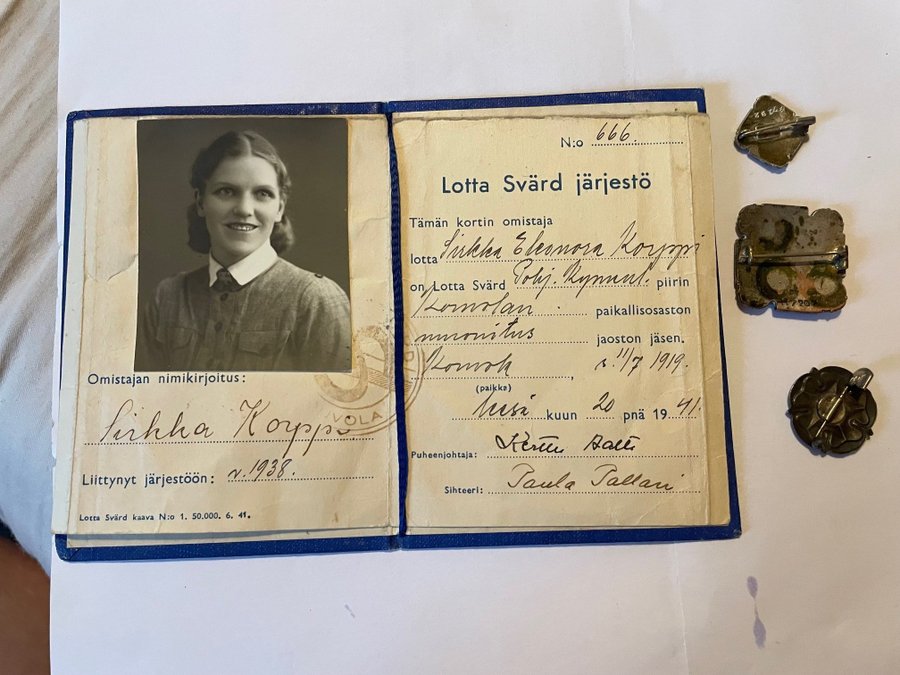 Omistajan nimikirjoitus:
Sirkka Korppi
Liittynyt järjestöön: v. 1938.
Lotta Svärd kaava N:o 1. 50.000. 6. 41.
VOLA
N:o 666.
Lotta Svärd järjestö
Tämän kortin omistaja
lotta Sirkka Eleonora Korppi
on Lotta Svärd Pohj. Kymenl. piirin
paikallisosaston
muonitus jaoston jäsen.
s. 11/7 1919.
(paikka)
kesä kuun 20 pnä 1941.
Puheenjohtaja: Kerttu Aalto
Sihteeri: Paula Pallari